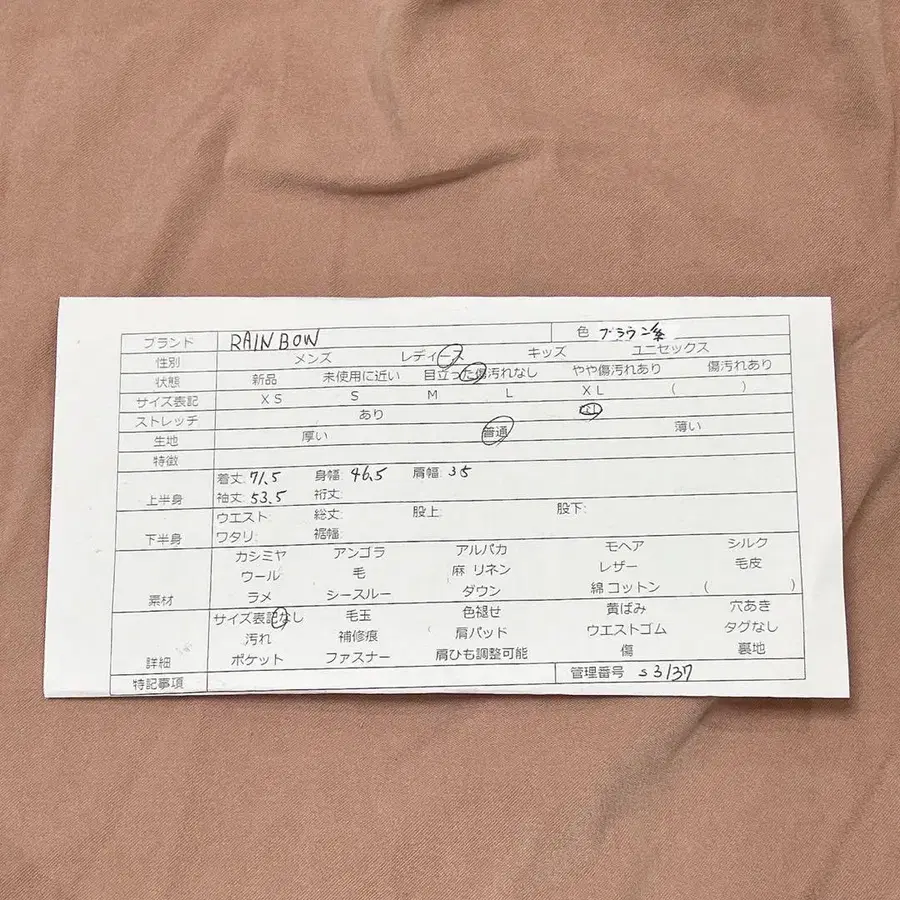 ブランド RAINBOW 色 ブラウン系
性別 メンズ レディース キッズ ユニセックス
状態 新品 未使用に近い 目立った傷汚れなし やや傷汚れあり 傷汚れあり
サイズ表記 XS S M L XL ( )
ストレッチ あり なし
生地 厚い 普通 薄い
特徴
上半身 着丈: 71.5 身幅: 46.5 肩幅: 35
袖丈: 53.5 裄丈:
下半身 ウエスト: 総丈: 股上: 股下:
ワタリ: 裾幅:
素材 カシミヤ アンゴラ アルパカ モヘア シルク
ウール 毛 麻 リネン レザー 毛皮
ラメ シースルー ダウン 綿 コットン ( )
詳細 サイズ表記なし 毛玉 色褪せ 黄ばみ 穴あき
汚れ 補修痕 肩パッド ウエストゴム タグなし
ポケット ファスナー 肩ひも調整可能 傷 裏地
特記事項 管理番号 S3137